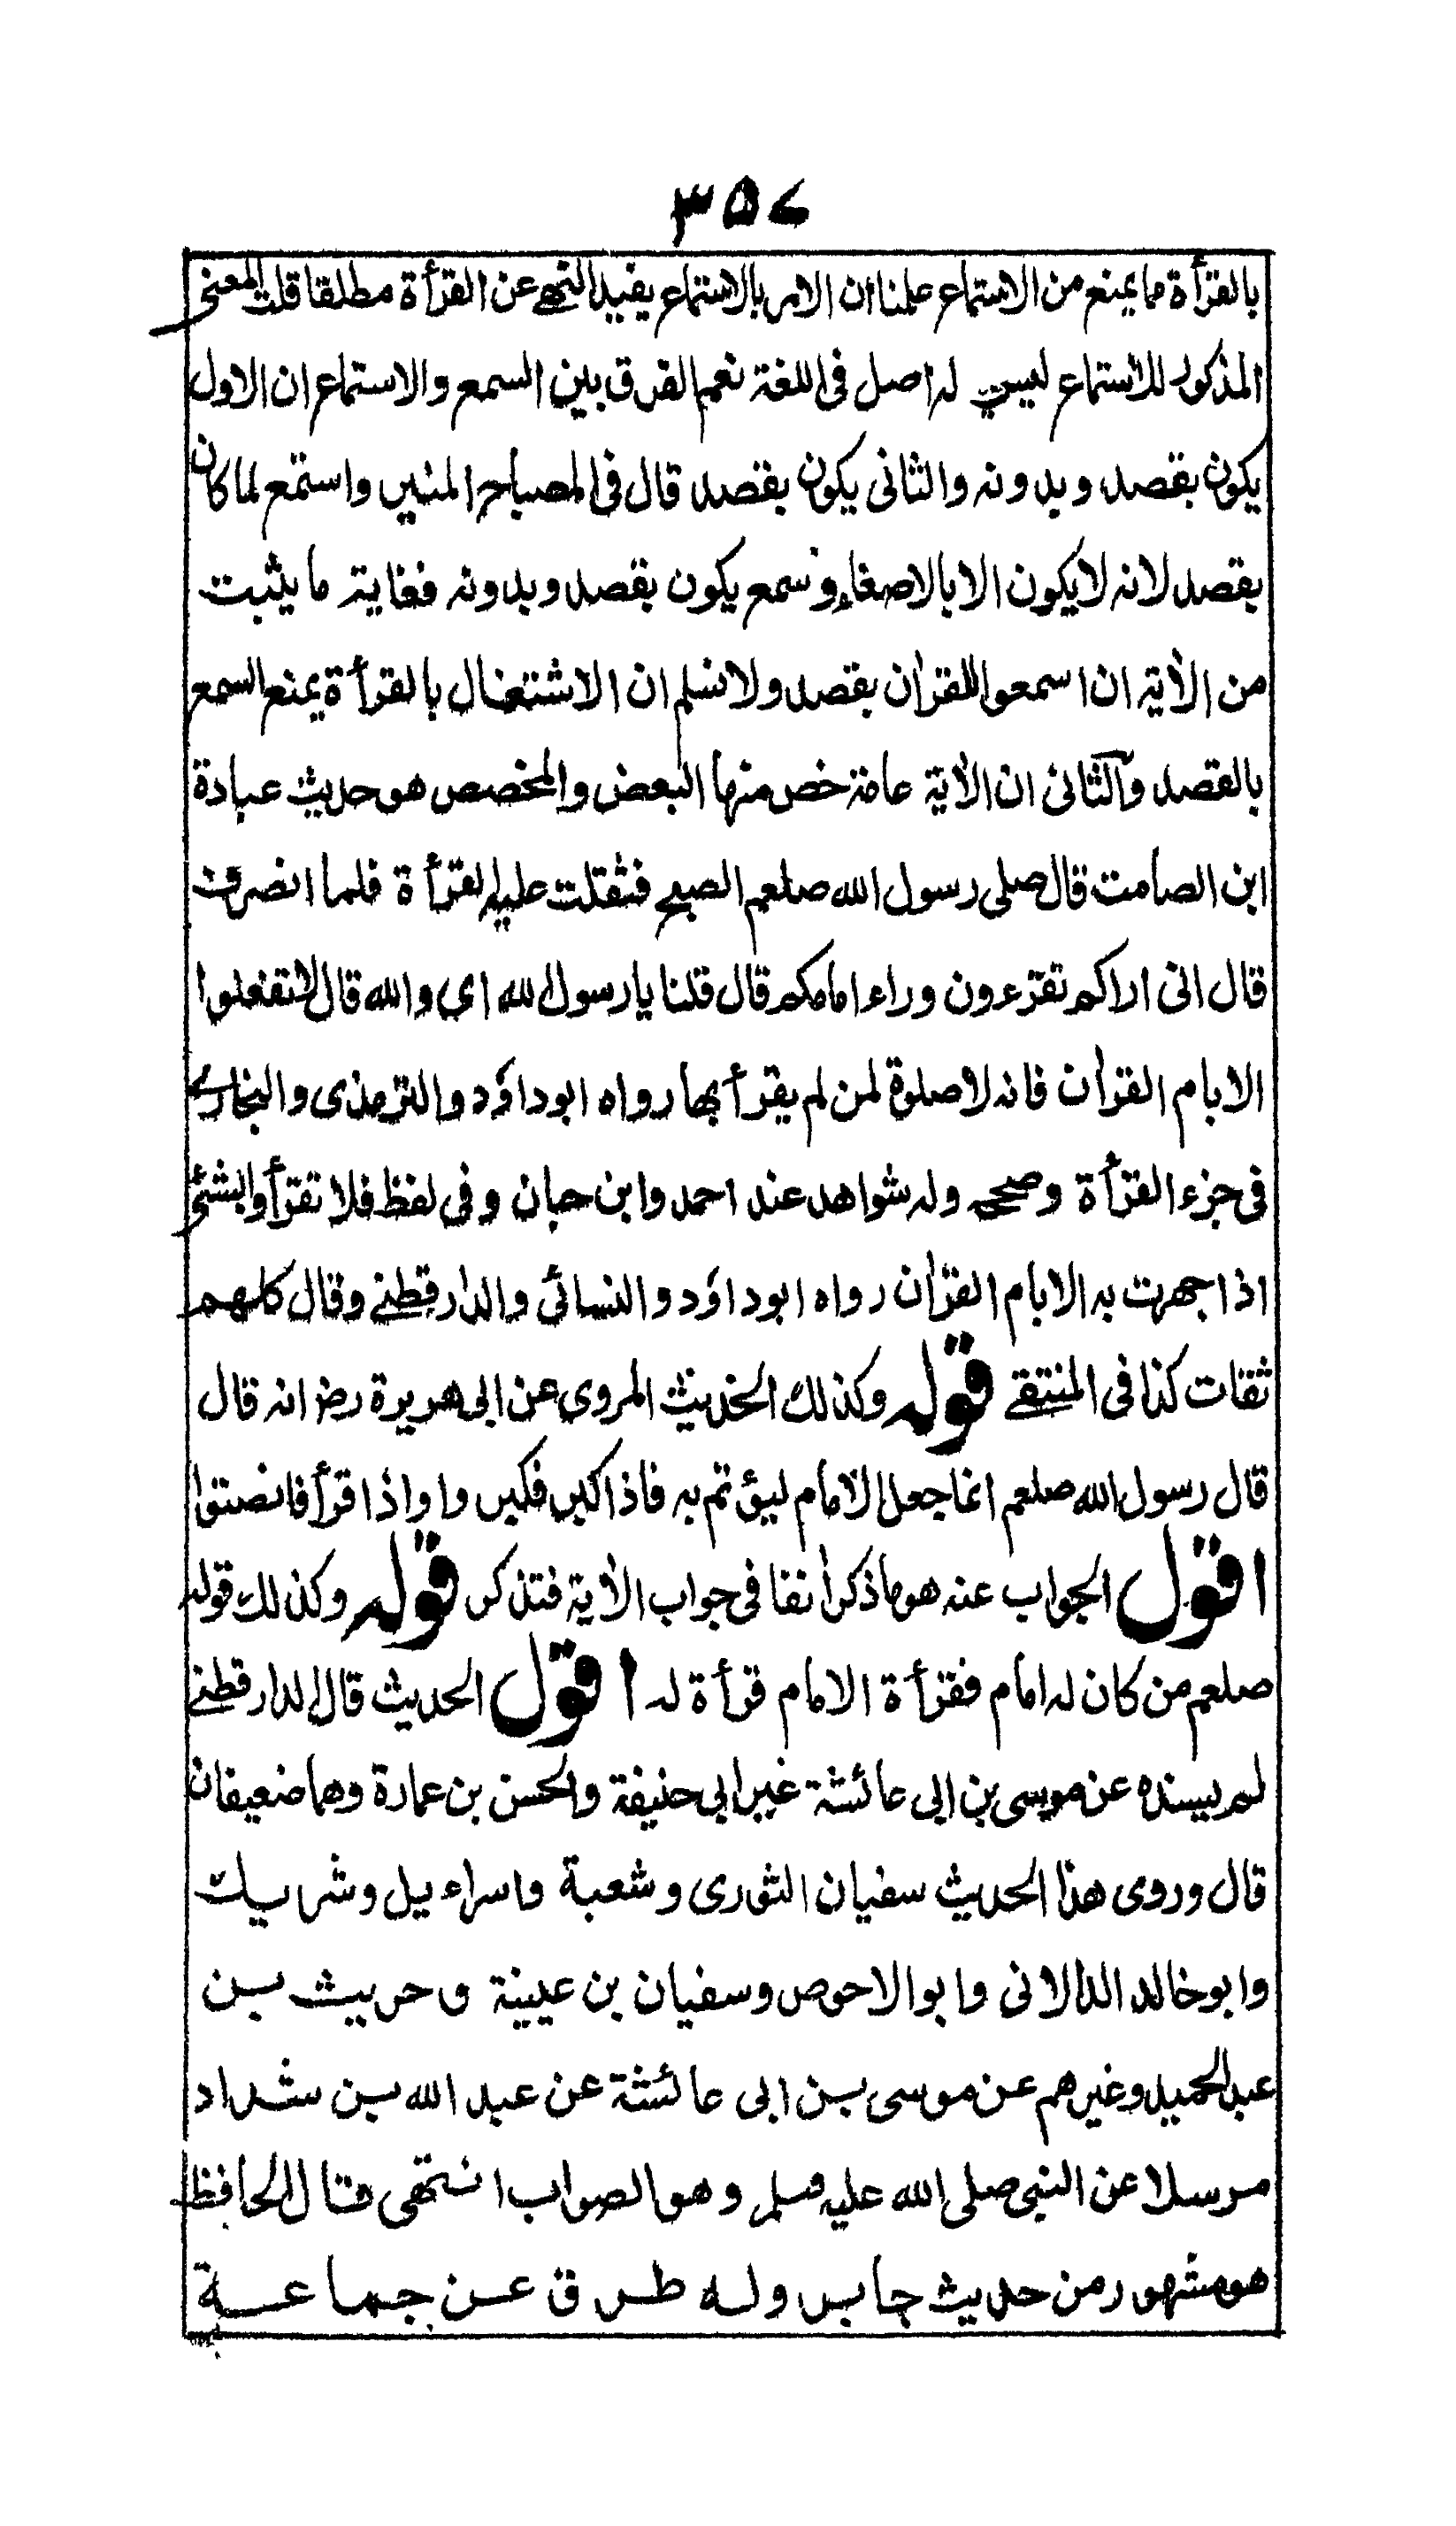 ٣٥٧
بالقرأة مما يمنع من الاستماع علمنا ان الامر بالاستماع يفيد النهى عن القرأة مطلقا قلت المعنى
المذكور للاستماع ليس له اصل فى اللغة نعم الفرق بين السمع والاستماع ان الاول
يكون بقصد وبدونه والثانى يكون بقصد قال فى المصباح المنير واستمع لما كان
بقصد لانه لا يكون الا بالاصغاء وسمع يكون بقصد وبدونه فغاية ما يثبت
من الأية ان اسمعوا للقرأن بقصد ولا نسلم ان الاشتغال بالقرأة يمنع السمع
بالقصد والثانى ان الأية عامة خص منها البعض والمخصص هو حديث عبادة
ابن الصامت قال صلى رسول الله صلعم الصبح فثقلت عليه القرأة فلما انصرف
قال انى اراكم تقرءون وراء امامكم قال قلنا يا رسول الله اي والله قال لا تفعلوا
الا بام القرأن فانه لا صلوة لمن لم يقرأ بها رواه ابوداؤد والترمذى والبخارى
فى جزء القرأة وصححه وله شواهد عند احمد وابن حبان وفى لفظ فلا تقرأوا بشئ
اذا جهرت به الا بام القرأن رواه ابوداؤد والنسائى والدارقطنى وقال كلهم
ثقات كذا فى المنتقى قوله وكذلك الحديث المروي عن ابى هريرة رض انه قال
قال رسول الله صلعم انما جعل الامام ليؤتم به فاذا كبر فكبروا واذا قرأ فانصتوا
اقول الجواب عنه هو ما ذكر أنفا فى جواب الأية فتذكر قوله وكذلك قوله
صلعم من كان له امام فقرأة الامام قرأة له اقول الحديث قال الدارقطنى
لم يسنده عن موسى بن ابى عائشة غير ابى حنيفة والحسن بن عمارة وهما ضعيفان
قال وروى هذا الحديث سفيان الثورى وشعبة واسراءيل وشريك
وابو خالد الدالانى وابو الاحوص وسفيان بن عيينة وحريث بن
عبد الحميد وغيرهم عن موسى بن ابى عائشة عن عبد الله بن شداد
مرسلا عن النبى صلى الله عليه وسلم وهو الصواب انتهى قال الحافظ
هو مشهور من حديث جابر وله طرق عن جماعة